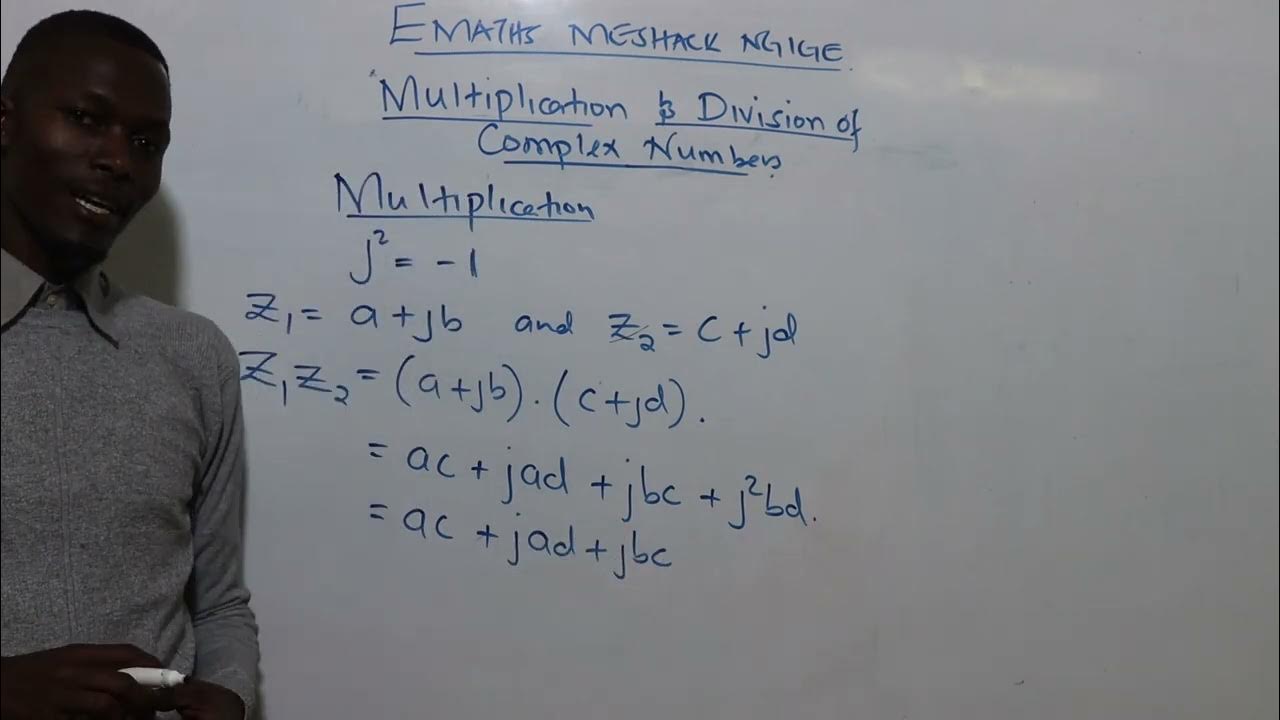 EMATHS MESHACK NGIGE
Multiplication & Division of
Complex Numbers
Multiplication
j² = -1
Z₁ = a + jb and Z₂ = c + jd
Z₁Z₂ = (a + jb) . (c + jd).
= ac + jad + jbc + j²bd.
= ac + jad + jbc